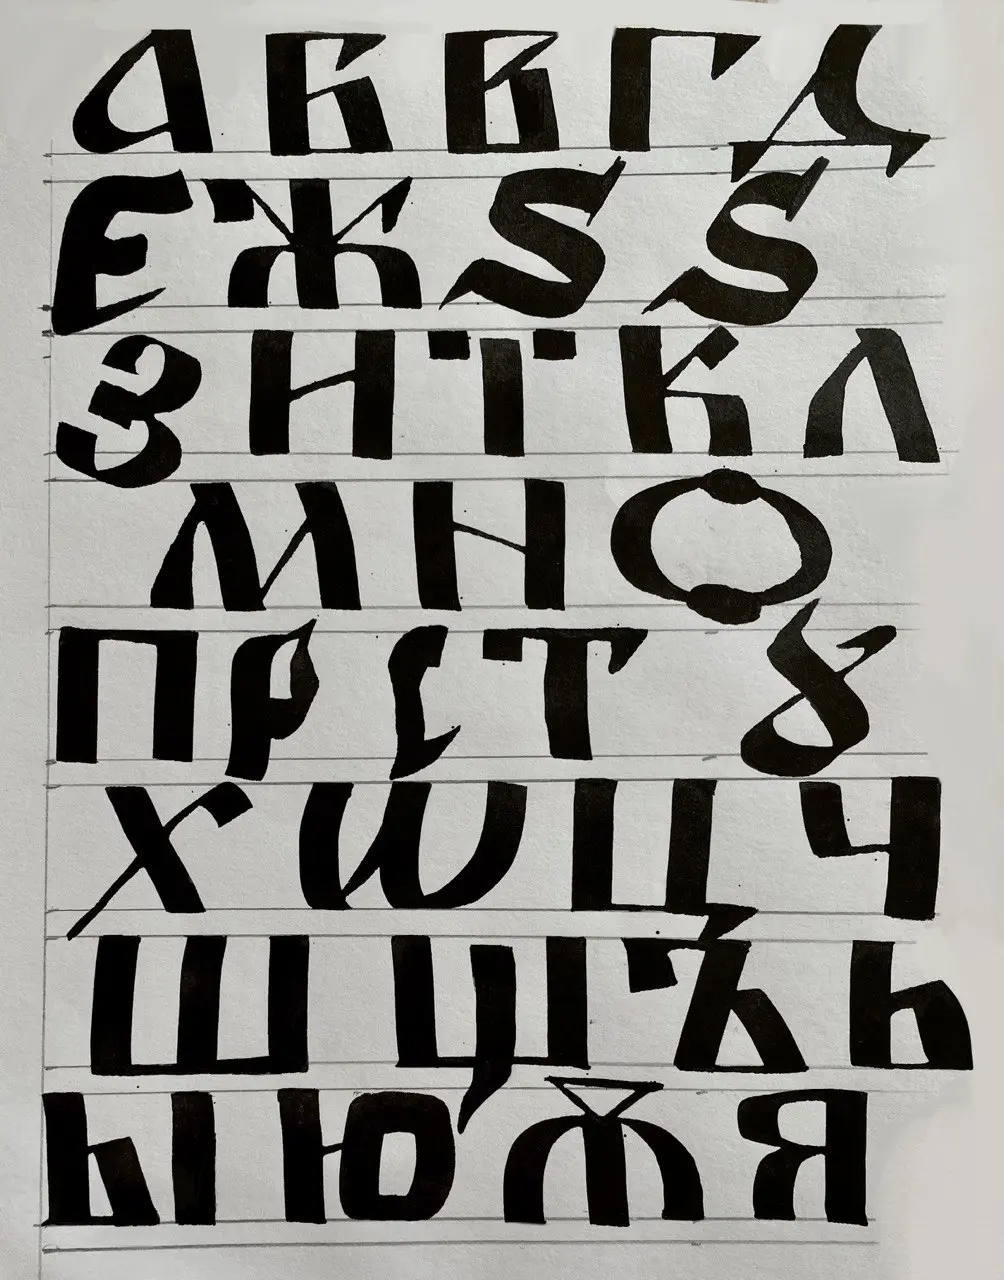 А Б В Г Д
Е Ж Ѕ Ѕ
З И Ї К Л
М Н О
П Р С Т Ꙋ
Х Ѡ Ц Ч
Ш Щ Ъ Ь
Ы Ю Ѫ Я